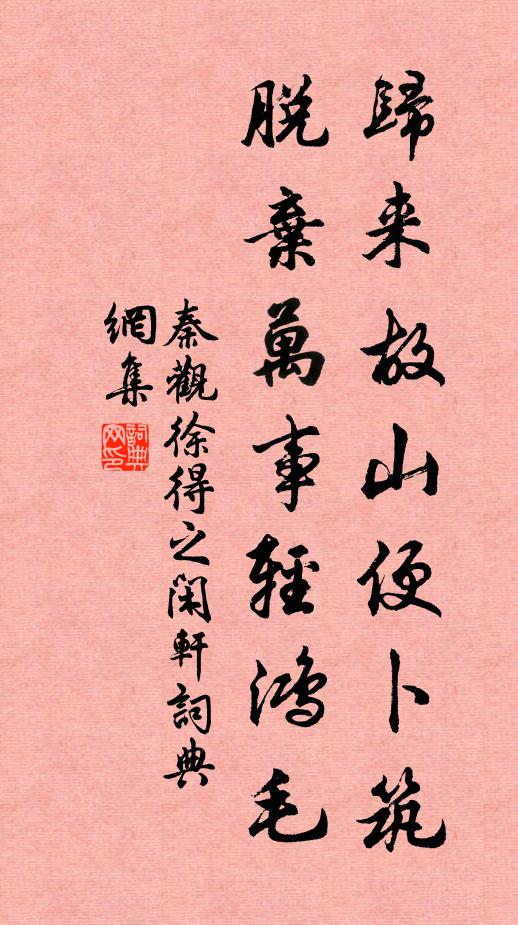 歸来故山便卜筑
脫棄萬事輕鴻毛
秦觀徐得之闲軒詞典
網集
詞典
网印